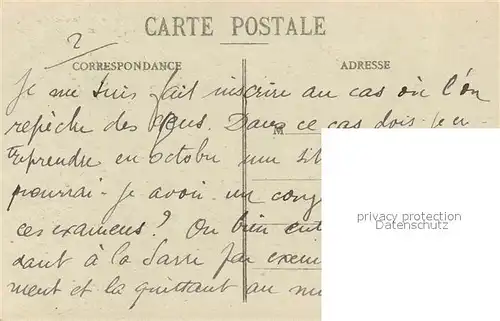 2
CARTE POSTALE
CORRESPONDANCE
ADRESSE
Je me suis fait inscrire au cas où l'on
repêche des gens. Dans ce cas dois-je en-
treprendre en octobre une
pourrai-je avoir un cong
ces examens? Ou bien
dant à la Sarre par exem
ment et la quittant au
privacy protection
Datenschutz